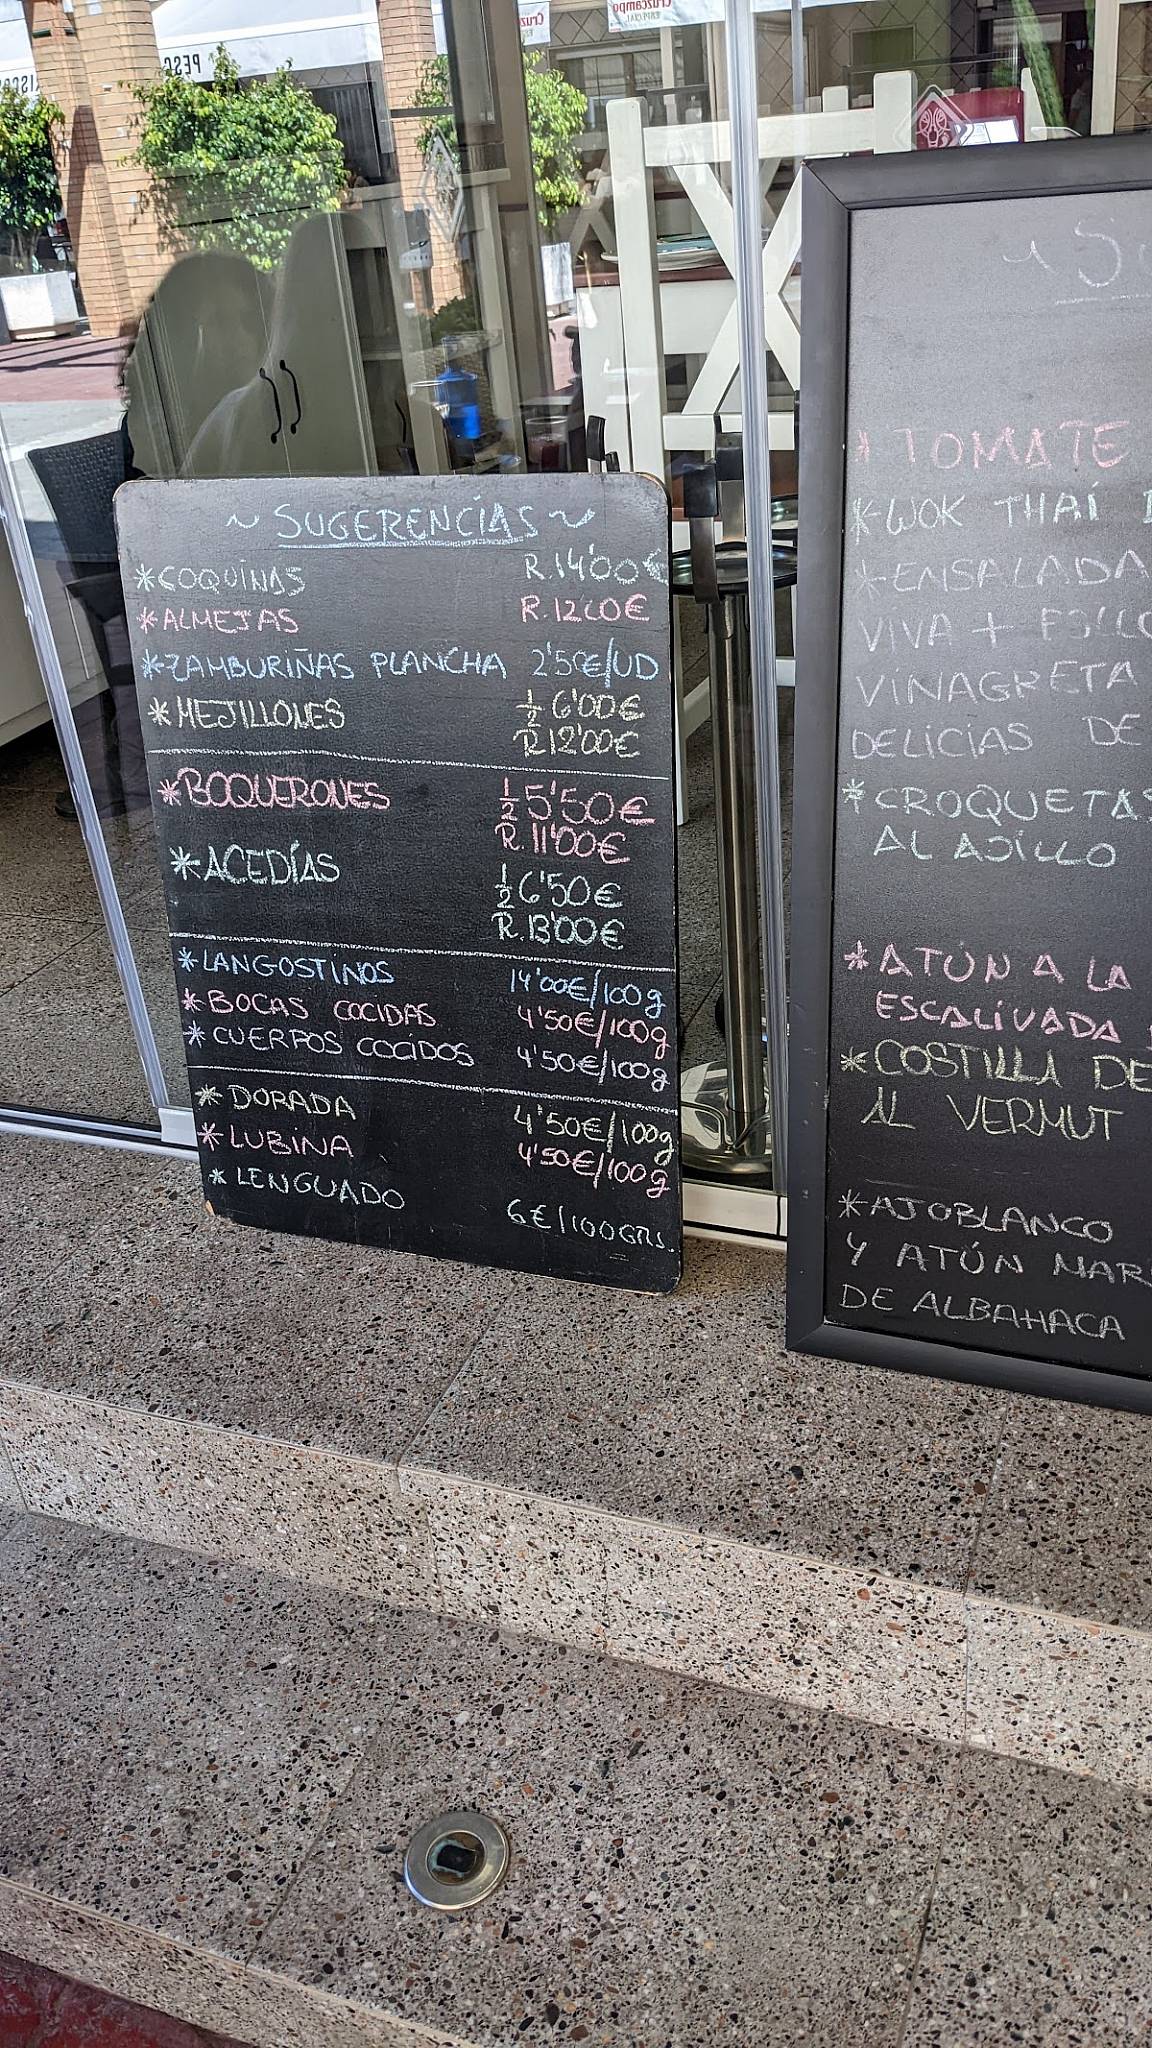 Cruzcampo
ESPECIAL
PESC
~ SUGERENCÍAS ~
*COQUINAS R.14'00€
*ALMEJAS
*ZAMBURIÑAS PLANCHA 2'50€/UD
*MEJILLONES ½ 6'00€
R.12'00€
*BOQUERONES ½ 5'50€
R.11'00€
*ACEDÍAS ½ 6'50€
R.13'00€
*LANGOSTINOS 14'00€/100g
*BOCAS COCIDAS 4'50€/100g
*CUERPOS COCIDOS 4'50€/100g
*DORADA 4'50€/100g
*LUBINA 4'50€/100g
*LENGUADO 6€/100GRS.
*TOMATE
*WOK THAÍ
*ENSALADA
VIVA +
VINAGRETA
DELICIAS DE
*CROQUETAS
AL AJILLO
*ATÚN A LA
ESCALIVADA
*COSTILLA DE
AL VERMUT
*AJOBLANCO
Y ATÚN MAR
DE ALBAHACA